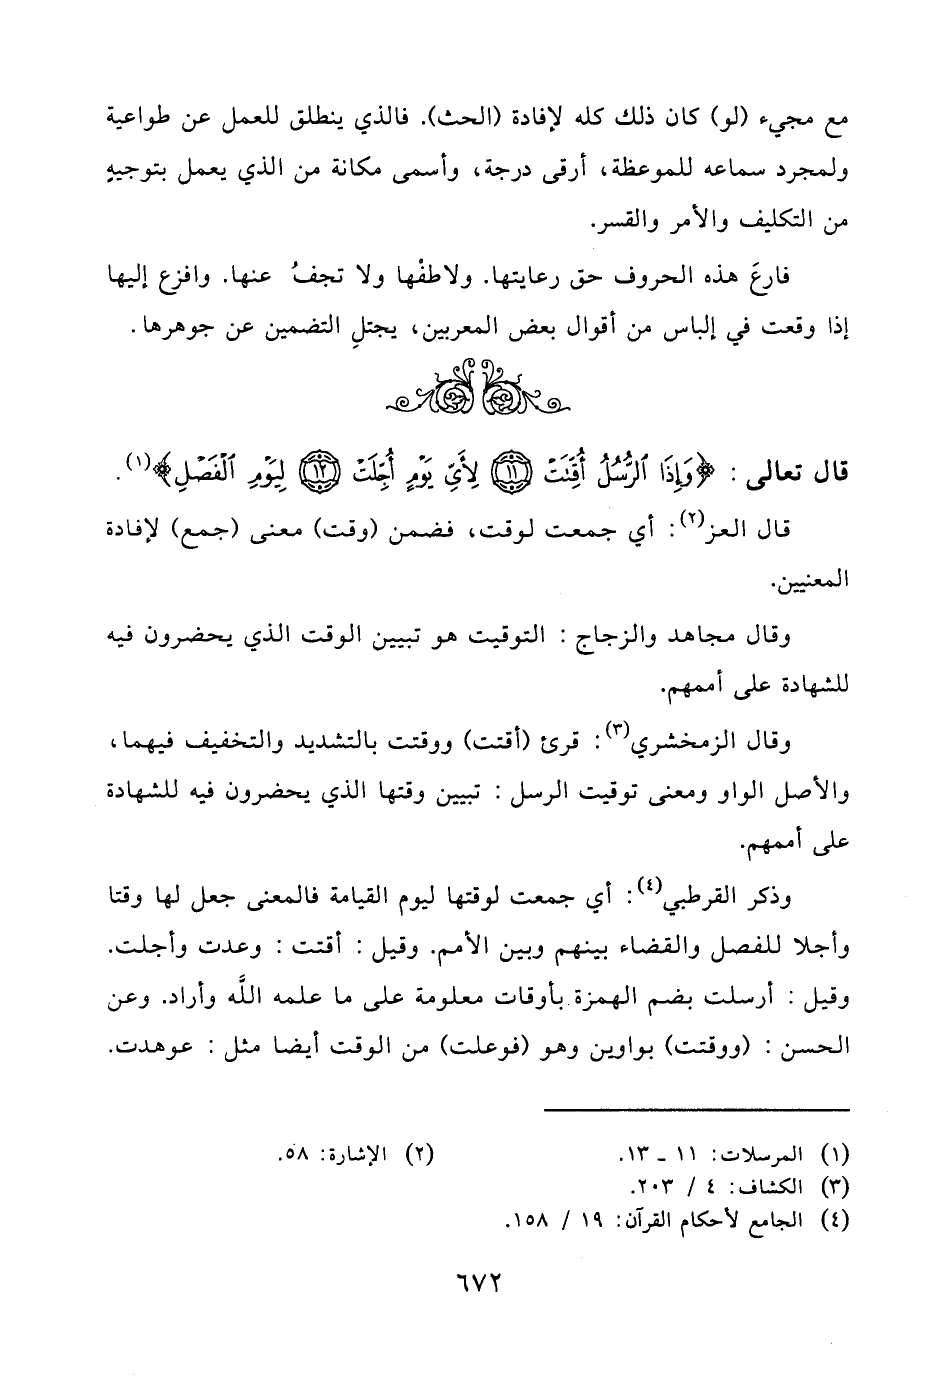 مع مجيء (لو) كان ذلك كله لإفادة (الحث). فالذي ينطلق للعمل عن طواعية
ولمجرد سماعه للموعظة، أرقى درجة، وأسمى مكانة من الذي يعمل بتوجيهٍ
من التكليف والأمر والقسر.
فارعَ هذه الحروف حق رعايتها. ولاطفْها ولا تجفُ عنها. وافزع إليها
إذا وقعت في إلباس من أقوال بعض المعربين، يجتلِ التضمين عن جوهرها.
قال تعالى : ﴿وَإِذَا ٱلرُّسُلُ أُقِّتَتْ ۝١١ لِأَيِّ يَوْمٍ أُجِّلَتْ ۝١٢ لِيَوْمِ ٱلْفَصْلِ﴾(١).
قال العز(٢): أي جمعت لوقت، فضمن (وقت) معنى (جمع) لإفادة
المعنيين.
وقال مجاهد والزجاج : التوقيت هو تبيين الوقت الذي يحضرون فيه
للشهادة على أممهم.
وقال الزمخشري(٣): قرئ (أقتت) ووقتت بالتشديد والتخفيف فيهما،
والأصل الواو ومعنى توقيت الرسل : تبيين وقتها الذي يحضرون فيه للشهادة
على أممهم.
وذكر القرطبي(٤): أي جمعت لوقتها ليوم القيامة فالمعنى جعل لها وقتا
وأجلا للفصل والقضاء بينهم وبين الأمم. وقيل : أقتت : وعدت وأجلت.
وقيل : أرسلت بضم الهمزة بأوقات معلومة على ما علمه اللَّه وأراد. وعن
الحسن : (ووقتت) بواوين وهو (فوعلت) من الوقت أيضا مثل : عوهدت.
(١) المرسلات: ١١ ـ ١٣. (٢) الإشارة: ٥٨.
(٣) الكشاف: ٤ / ٢٠٣.
(٤) الجامع لأحكام القرآن: ١٩ / ١٥٨.
٦٧٢